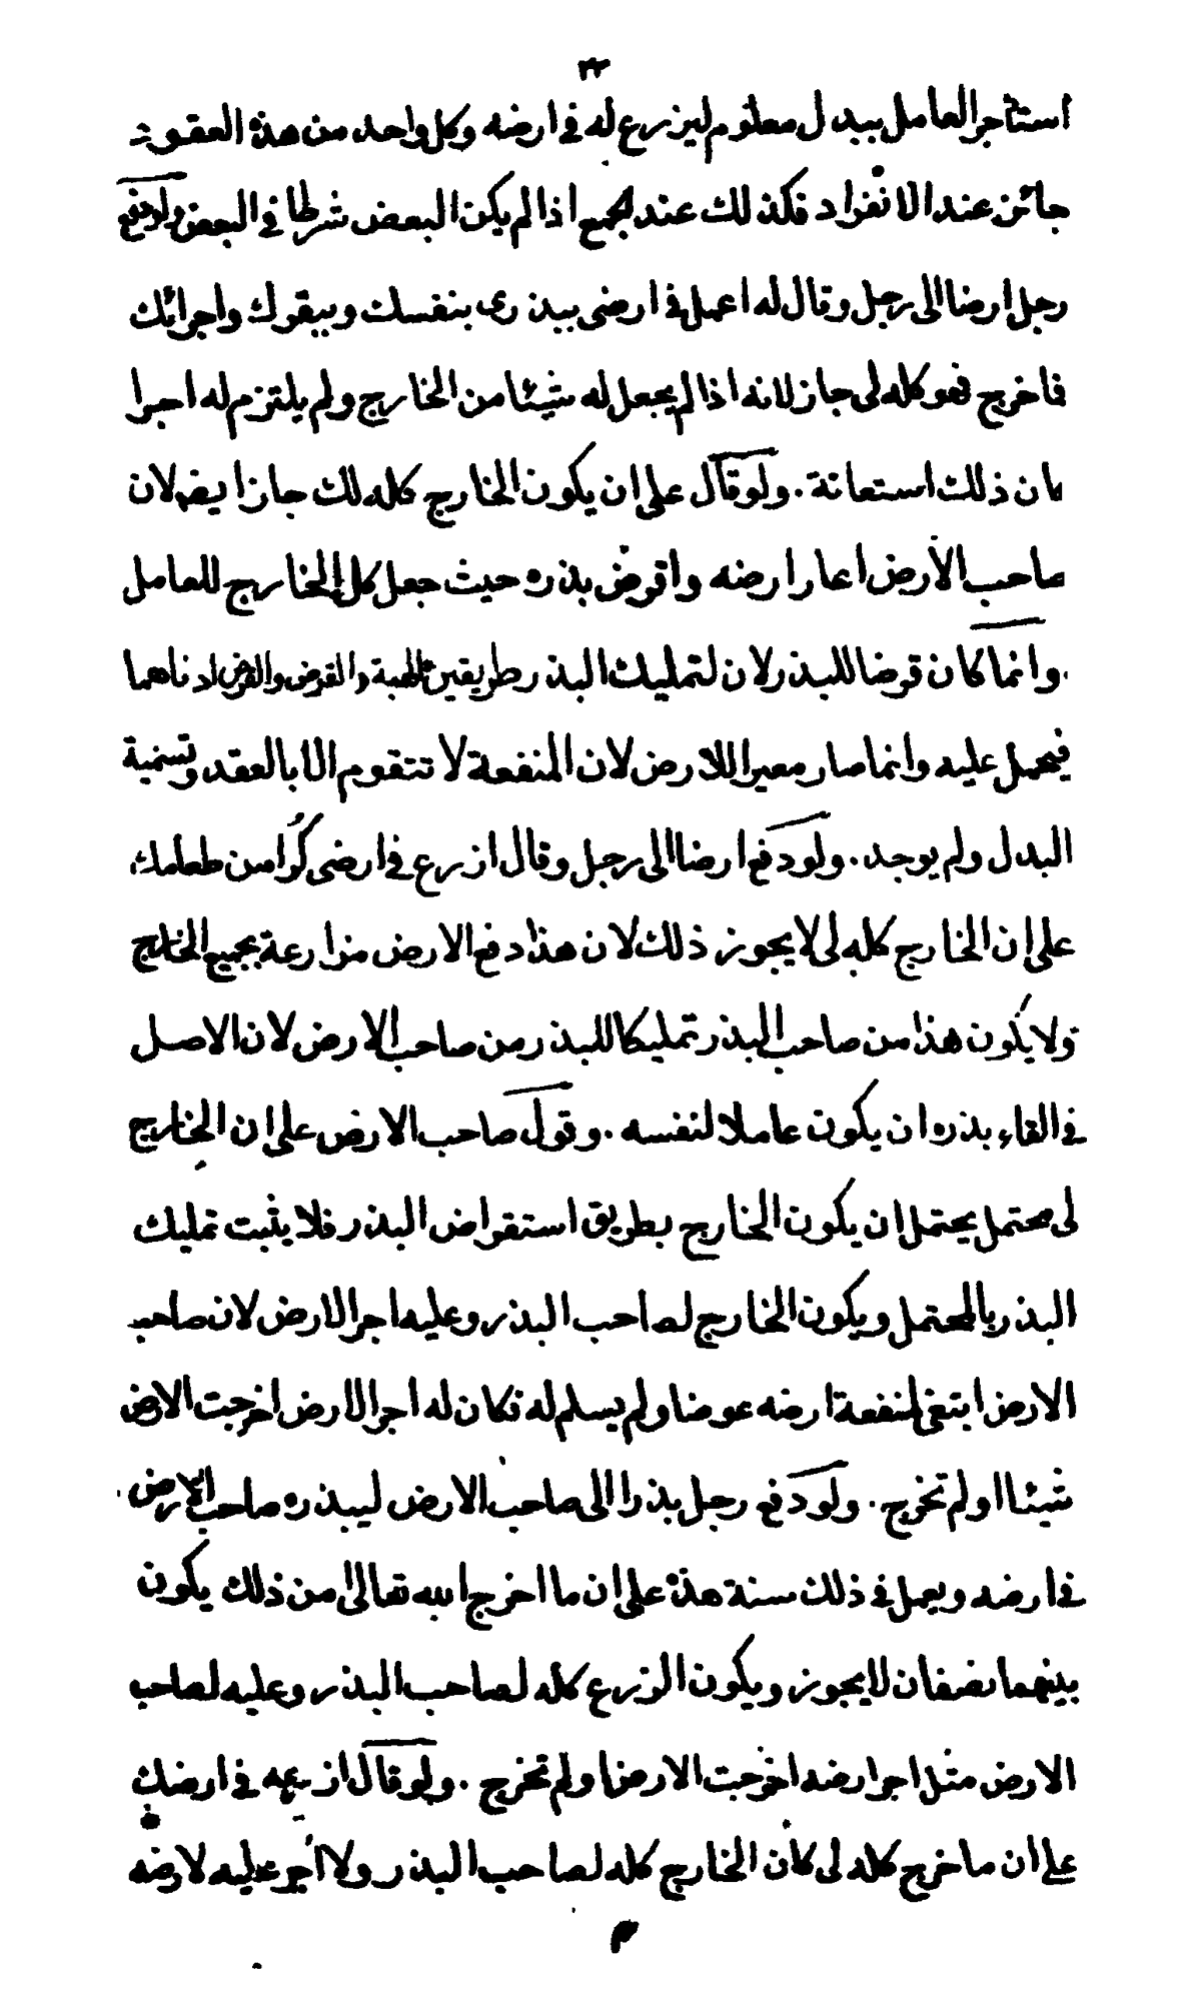 ٣٢
استأجر العامل ببدل معلوم ليزرع له في ارضه وكل واحد من هذه العقود
جائز عند الانفراد فكذلك عند الجمع اذا لم يكن البعض شرطا في البعض ولو دفع
رجل ارضا الى رجل وقال له اعمل في ارضى ببذرى بنفسك وببقرك واجرائك
فاخرج فهو كله لى جاز لانه اذا لم يجعل له شيئا من الخارج ولم يلتزم له اجرا
كان ذلك استعانة . ولو قال على ان يكون الخارج كله لك جاز ايضا لان
صاحب الأرض اعار ارضه واقرض بذره حيث جعل كل الخارج للعامل
وانما كان قرضا للبذر لان لتمليك البذر طريقين الهبة والقرض والقرض ادناهما
فيحمل عليه وانما صار معيرا للارض لان المنفعة لا تتقوم الا بالعقد وتسمية
البدل ولم يوجد . ولو دفع ارضا الى رجل وقال ازرع في ارضى كُرا من طعامك
على ان الخارج كله لى لا يجوز ذلك لان هذا دفع الارض مزارعة بجميع الخارج
ولا يكون هذا من صاحب البذر تمليكا للبذر من صاحب الارض لان الاصل
في القاء بذره ان يكون عاملا لنفسه . وقول صاحب الارض على ان الخارج
لى محتمل يحتمل ان يكون الخارج بطريق استقراض البذر فلا يثبت تمليك
البذر بالمحتمل ويكون الخارج لصاحب البذر وعليه اجر الارض لان صاحب
الارض ابتغى لمنفعة ارضه عوضا ولم يسلم له فكان له اجر الارض اخرجت الارض
شيئا او لم تخرج . ولو دفع رجل بذرا الى صاحب الارض ليبذره صاحب الارض
في ارضه ويعمل في ذلك سنة هذه على ان ما اخرج الله تعالى من ذلك يكون
بينهما نصفان لا يجوز ويكون الزرع كله لصاحب البذر وعليه لصاحب
الارض مثل اجر ارضه اخرجت الارض او لم تخرج . ولو قال ازرعه في ارضك
على ان ما خرج كله لى كان الخارج كله لصاحب البذر ولا اجر عليه لارضه